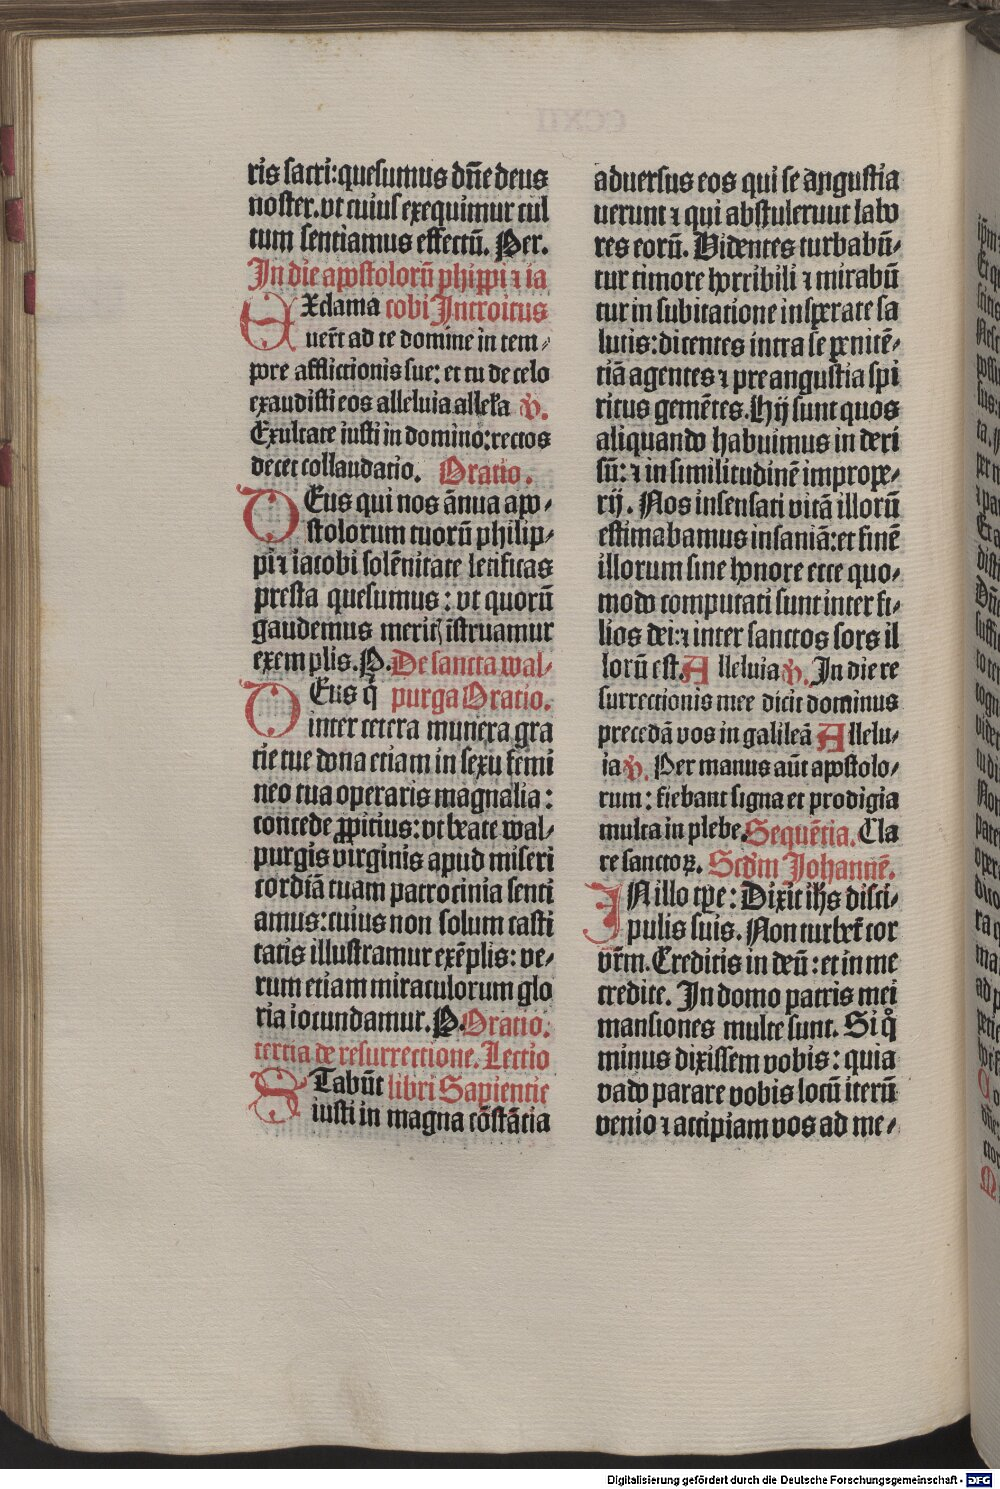 ris sacri: quesumus dn̄e deus
noster. vt cuius exequimur cul
tum sentiamus effectū. Per.
In die apostolorū phiꝓpi ⁊ ia
EXclama cobi Introitus
uer̄t ad te domine in tem⸗
pore afflictionis sue: et tu de celo
exaudisti eos alleluia alleła ℣.
Exultate iusti in domino: rectos
decet collaudatio. Oratio.
DEus qui nos ānua apo⸗
stolorum tuorū philip⸗
pi ⁊ iacobi solēnitate letificas
presta quesumus: vt quorū
gaudemus meritꝭ īstruamur
exemplis. P. De sancta wal⸗
DEus q̇ purga Oratio.
inter cetera munera gra
tie tue dona etiam in sexu femi
neo tua operaris magnalia:
concede ꝓpitius: vt beate wal⸗
purgis virginis apud miseri
cordiā tuam patrocinia senti
amus: cuius non solum casti
tatis illustramur exēplis: ve⸗
rum etiam miraculorum glo
ria iocundamur. P. Oratio.
tertia de resurrectione. Lectio
STabūt libri Sapientie
iusti in magna cōstātia
aduersus eos qui se angustia
uerunt ⁊ qui abstulerunt labo
res eorū. Videntes turbabū⸗
tur timore horribili ⁊ mirabū
tur in subitatione insperate sa
lutis: dicentes intra se penitē⸗
tiā agentes ⁊ pre angustia spi
ritus gemētes. Hij sunt quos
aliquando habuimus in deri
sū: ⁊ in similitudinē imprope⸗
rij. Nos insensati vitā illorū
estimabamus insaniā: et finē
illorum sine honore ecce quo⸗
modo computati sunt inter fi⸗
lios dei: ⁊ inter sanctos sors il
lorū est. Alleluia ℣. In die re
surrectionis mee dicit dominus
precedā vos in galileā Allelu⸗
ia ℣. Per manus aūt apostolo⸗
rum: fiebant signa et prodigia
multa in plebe. Sequētia. Cla
re sanctoꝝ. Scd̄m Johannē.
IN illo tꝑe: Dixit ihs̄ disci⸗
pulis suis. Non turbet̄ cor
vr̄m. Creditis in deū: et in me
credite. In domo patris mei
mansiones multe sunt. Si q̊
minus dixissem vobis: quia
vado parare vobis locū iterū
venio ⁊ accipiam vos ad me⸗
Digitalisierung gefördert durch die Deutsche Forschungsgemeinschaft - DFG